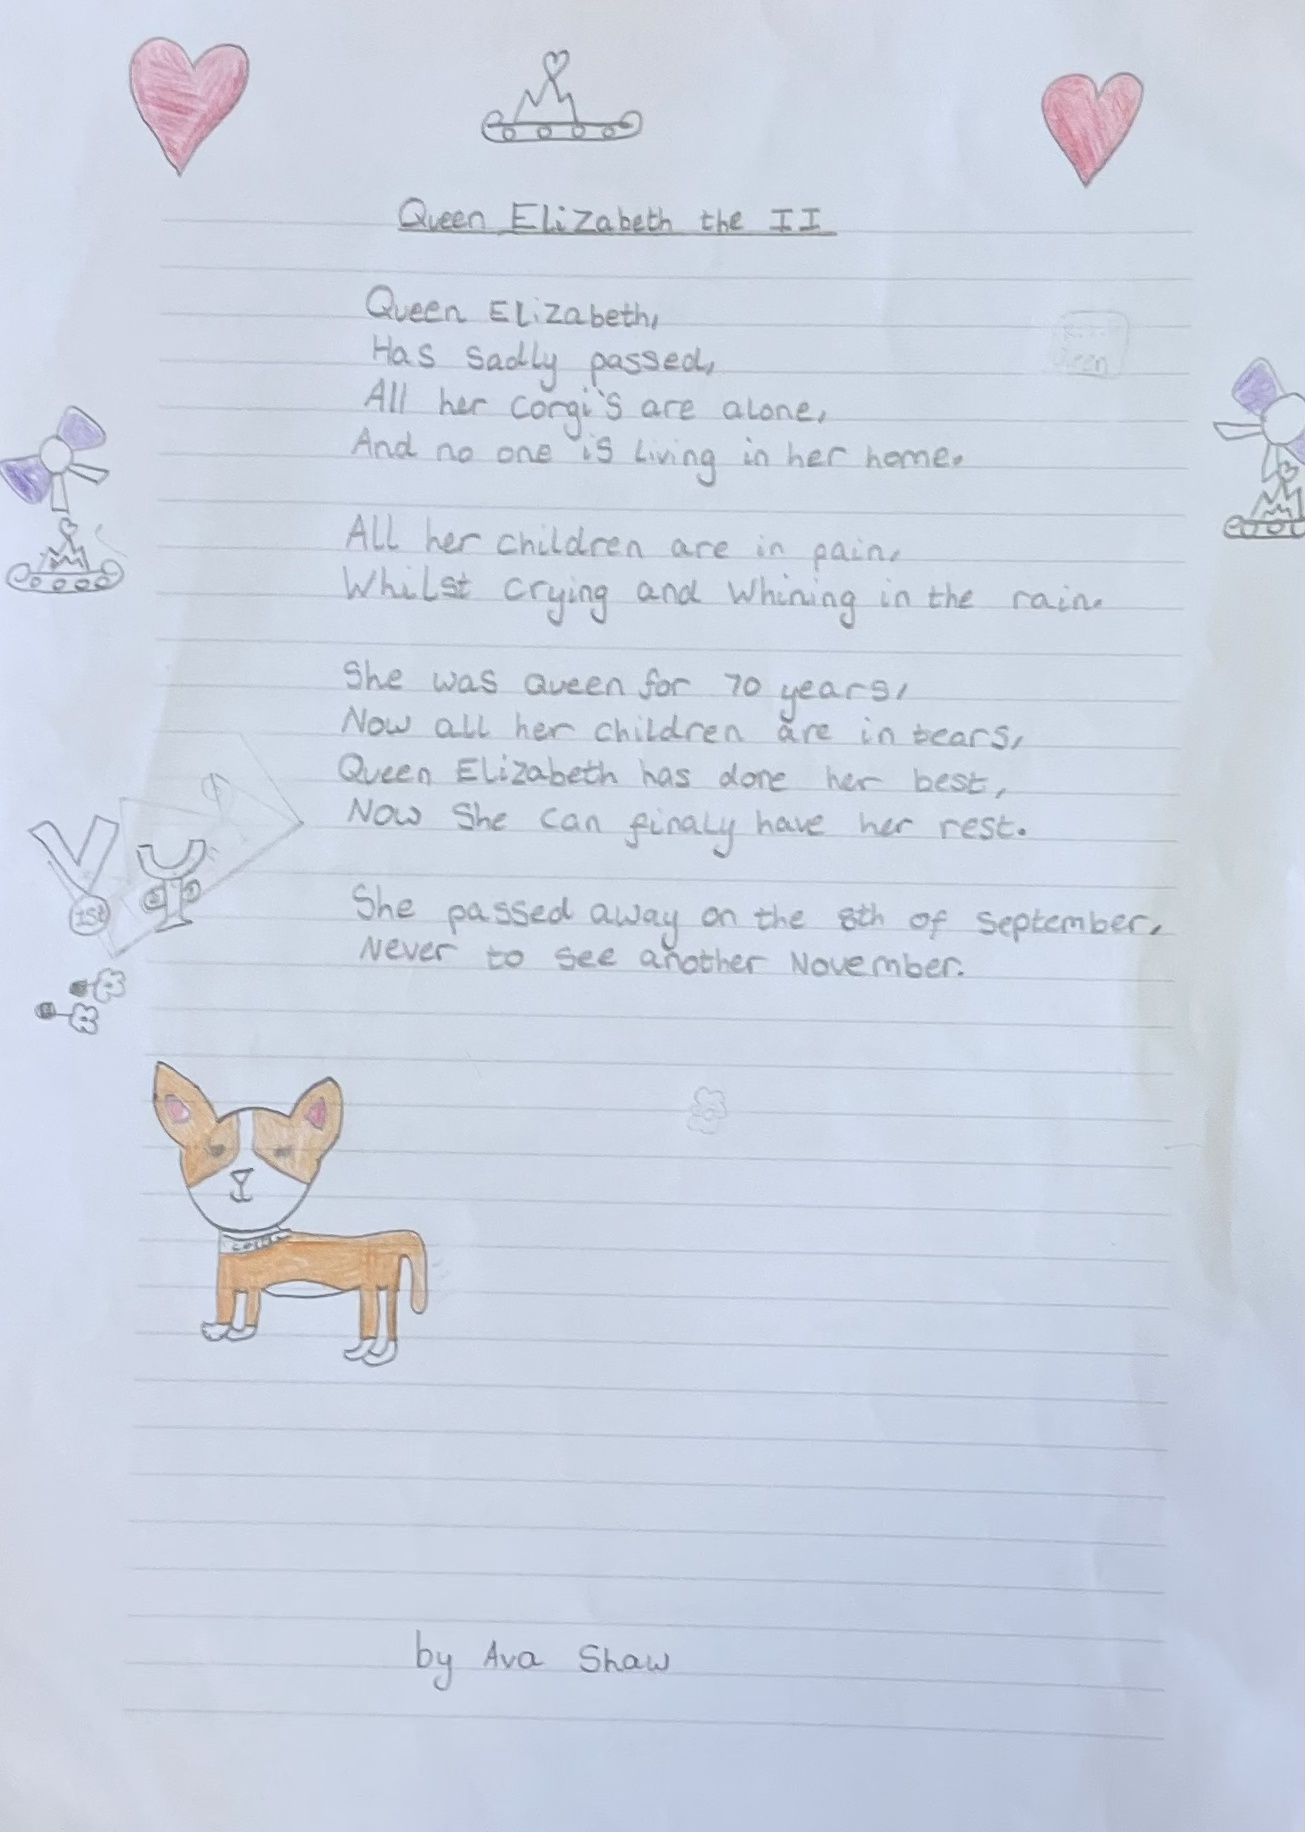 Queen Elizabeth the II
Queen Elizabeth,
Has sadly passed,
All her corgi's are alone,
And no one is living in her home.
All her children are in pain,
Whilst crying and whining in the rain.
She was queen for 70 years,
Now all her children are in tears,
Queen Elizabeth has done her best,
Now she can finaly have her rest.
1st
She passed away on the 8th of September,
Never to see another November.
by Ava Shaw